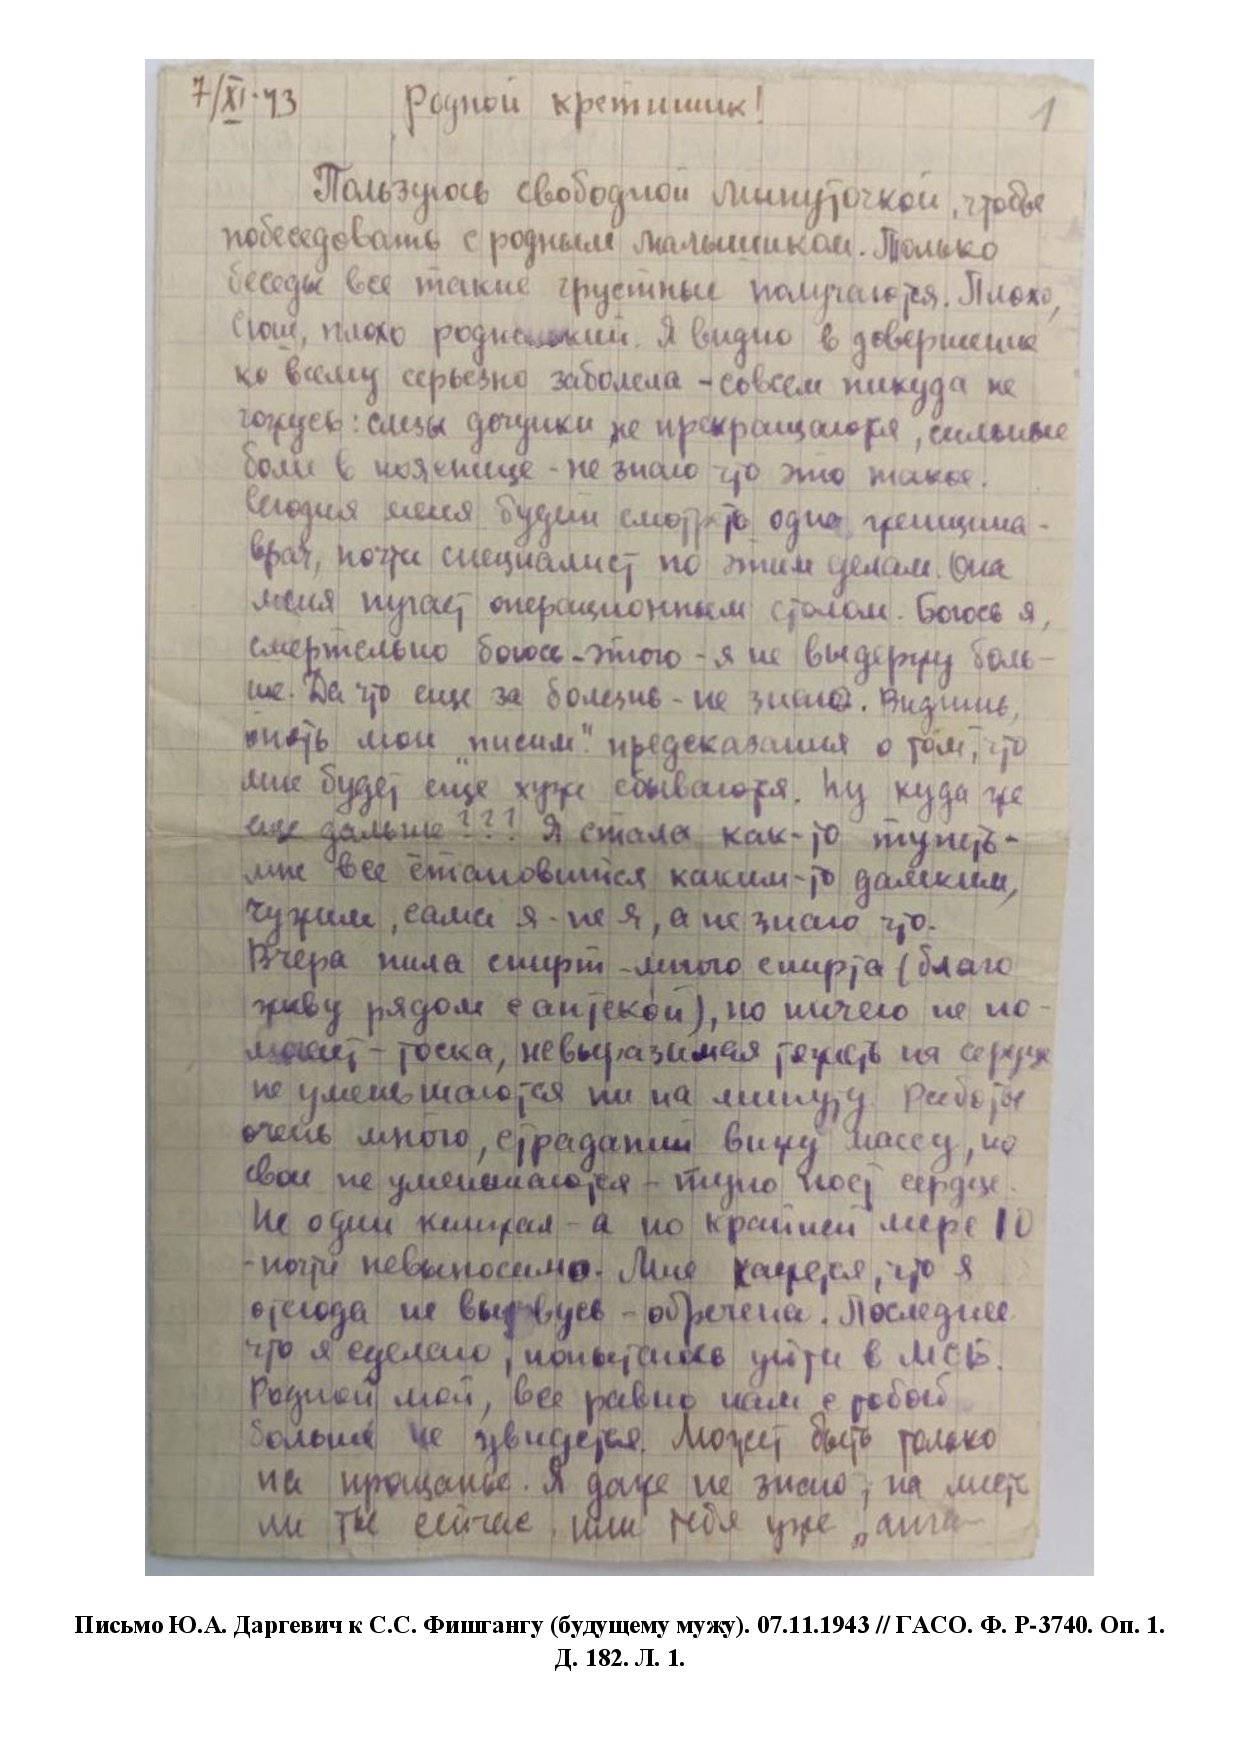 7/XI-43 Родной кретишик! 1
Пользуюсь свободной минуточкой, чтобы
побеседовать с родным малышиком. Только
беседы все такие грустные получаются. Плохо,
Сюш, плохо родненький. Я видно в довершение
ко всему серьезно заболела – совсем никуда не
гожусь: слезы дочурки не прекращаются, сильные
боли в пояснице – не знаю что это такое.
Сегодня меня будет смотреть одна женщина-
врач, почти специалист по этим делам. Она
меня пугает операционным столом. Боюсь я,
смертельно боюсь этого – я не выдержу боль-
ше. Да что еще за болезнь – не знаю. Видишь,
опять мои предсказания о том, что
мне будет еще хуже сбываются. Ну куда же
еще дальше??? Я стала как-то тупеть –
мне все становится каким-то далеким,
чужим, сама я – не я, а не знаю что.
Вчера пила спирт – много спирта (благо
живу рядом с аптекой), но ничего не по-
могает – тоска, невыразимая тяжесть на сердце
не уменьшаются ни на минуту. Работы
очень много, страданий вижу массу, но
свои не уменьшаются – тупо ноет сердце.
Не один – а по крайней мере 10
– почти невыносимо. Мне кажется, что я
отсюда не вырвусь – обречена. Последнее
что я сделаю, попытаюсь уйти в МСБ.
Родной мой, все равно нам с тобой
больше не увидеться. Может быть только
на прощанье. Я даже не знаю, на месте
ли ты сейчас, или тебя уже „анга-
Письмо Ю.А. Даргевич к С.С. Фишгангу (будущему мужу). 07.11.1943 // ГАСО. Ф. Р-3740. Оп. 1.
Д. 182. Л. 1.